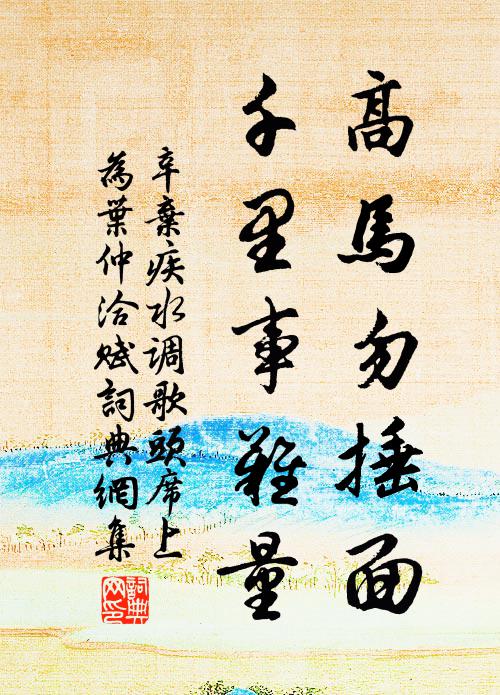 高馬勿捶面
千里事難量
辛棄疾水调歌頭席上
為葉仲洽赋詞典網集
詞典